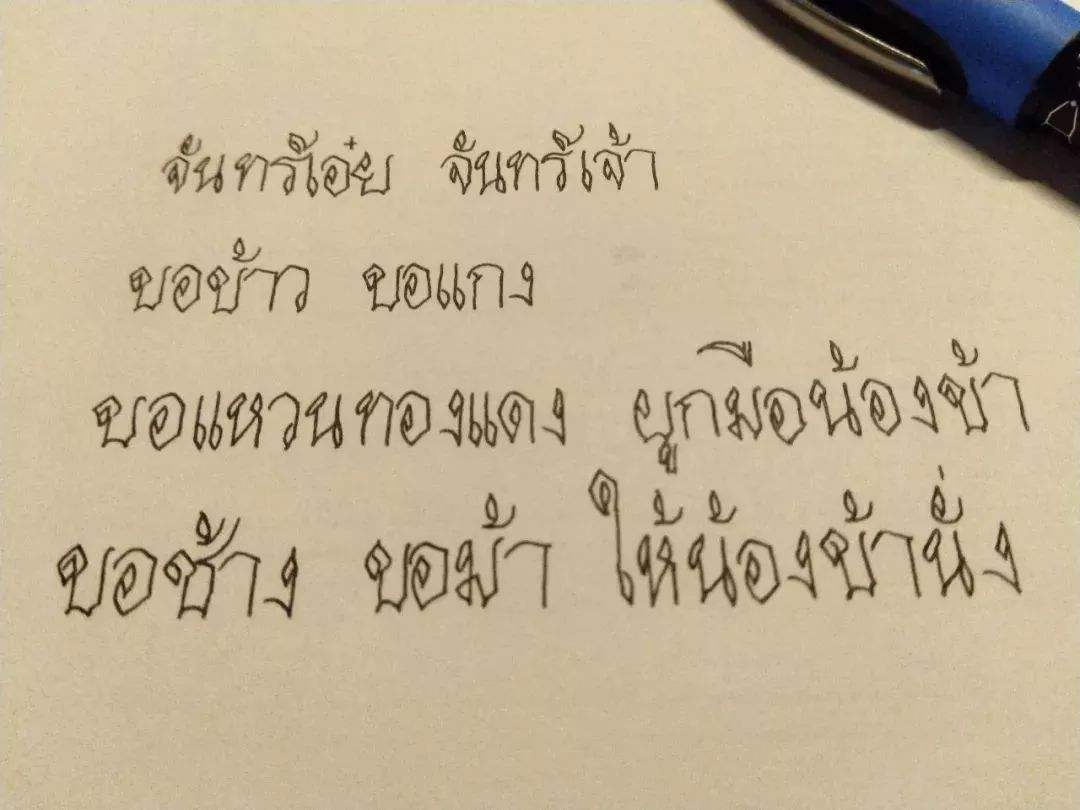 จันทร์เอ๋ย จันทร์เจ้า
ขอข้าว ขอแกง
ขอแหวนทองแดง ผูกมือน้องข้า
ขอช้าง ขอม้า ให้น้องข้านั่ง